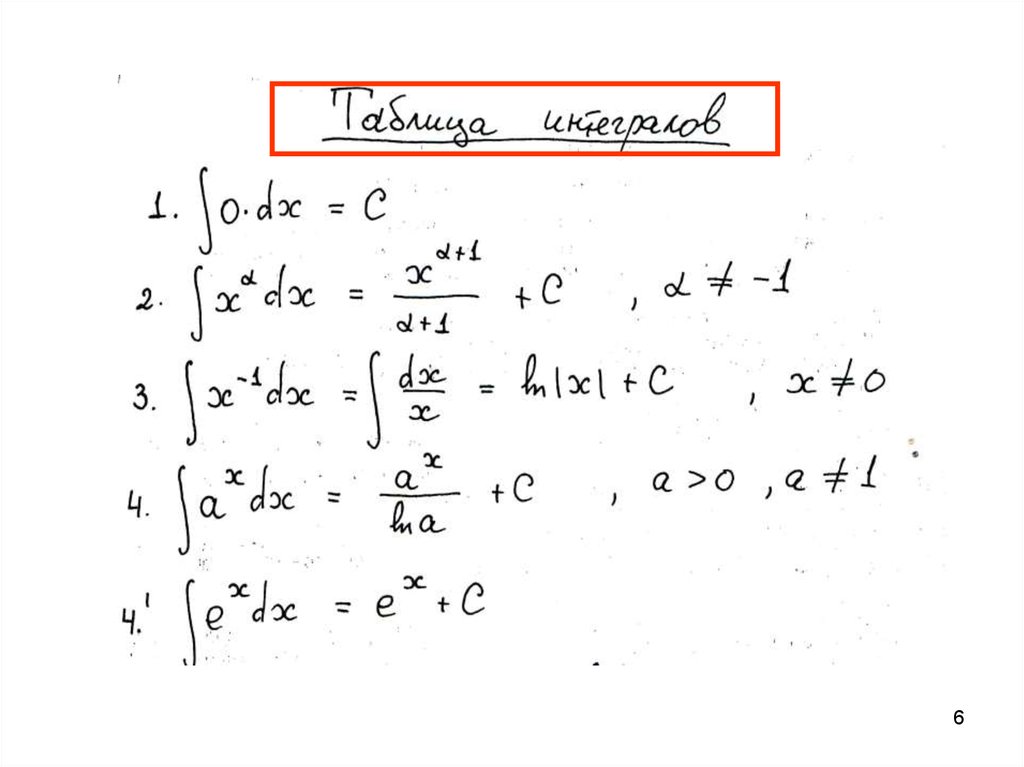 Таблица интегралов
1. ∫0·dx = C
2. ∫x^α dx = x^(α+1)/(α+1) + C , α ≠ -1
3. ∫x^(-1) dx = ∫dx/x = ln|x| + C , x ≠ 0
4. ∫a^x dx = a^x/ln a + C , a > 0 , a ≠ 1
4.' ∫e^x dx = e^x + C
6